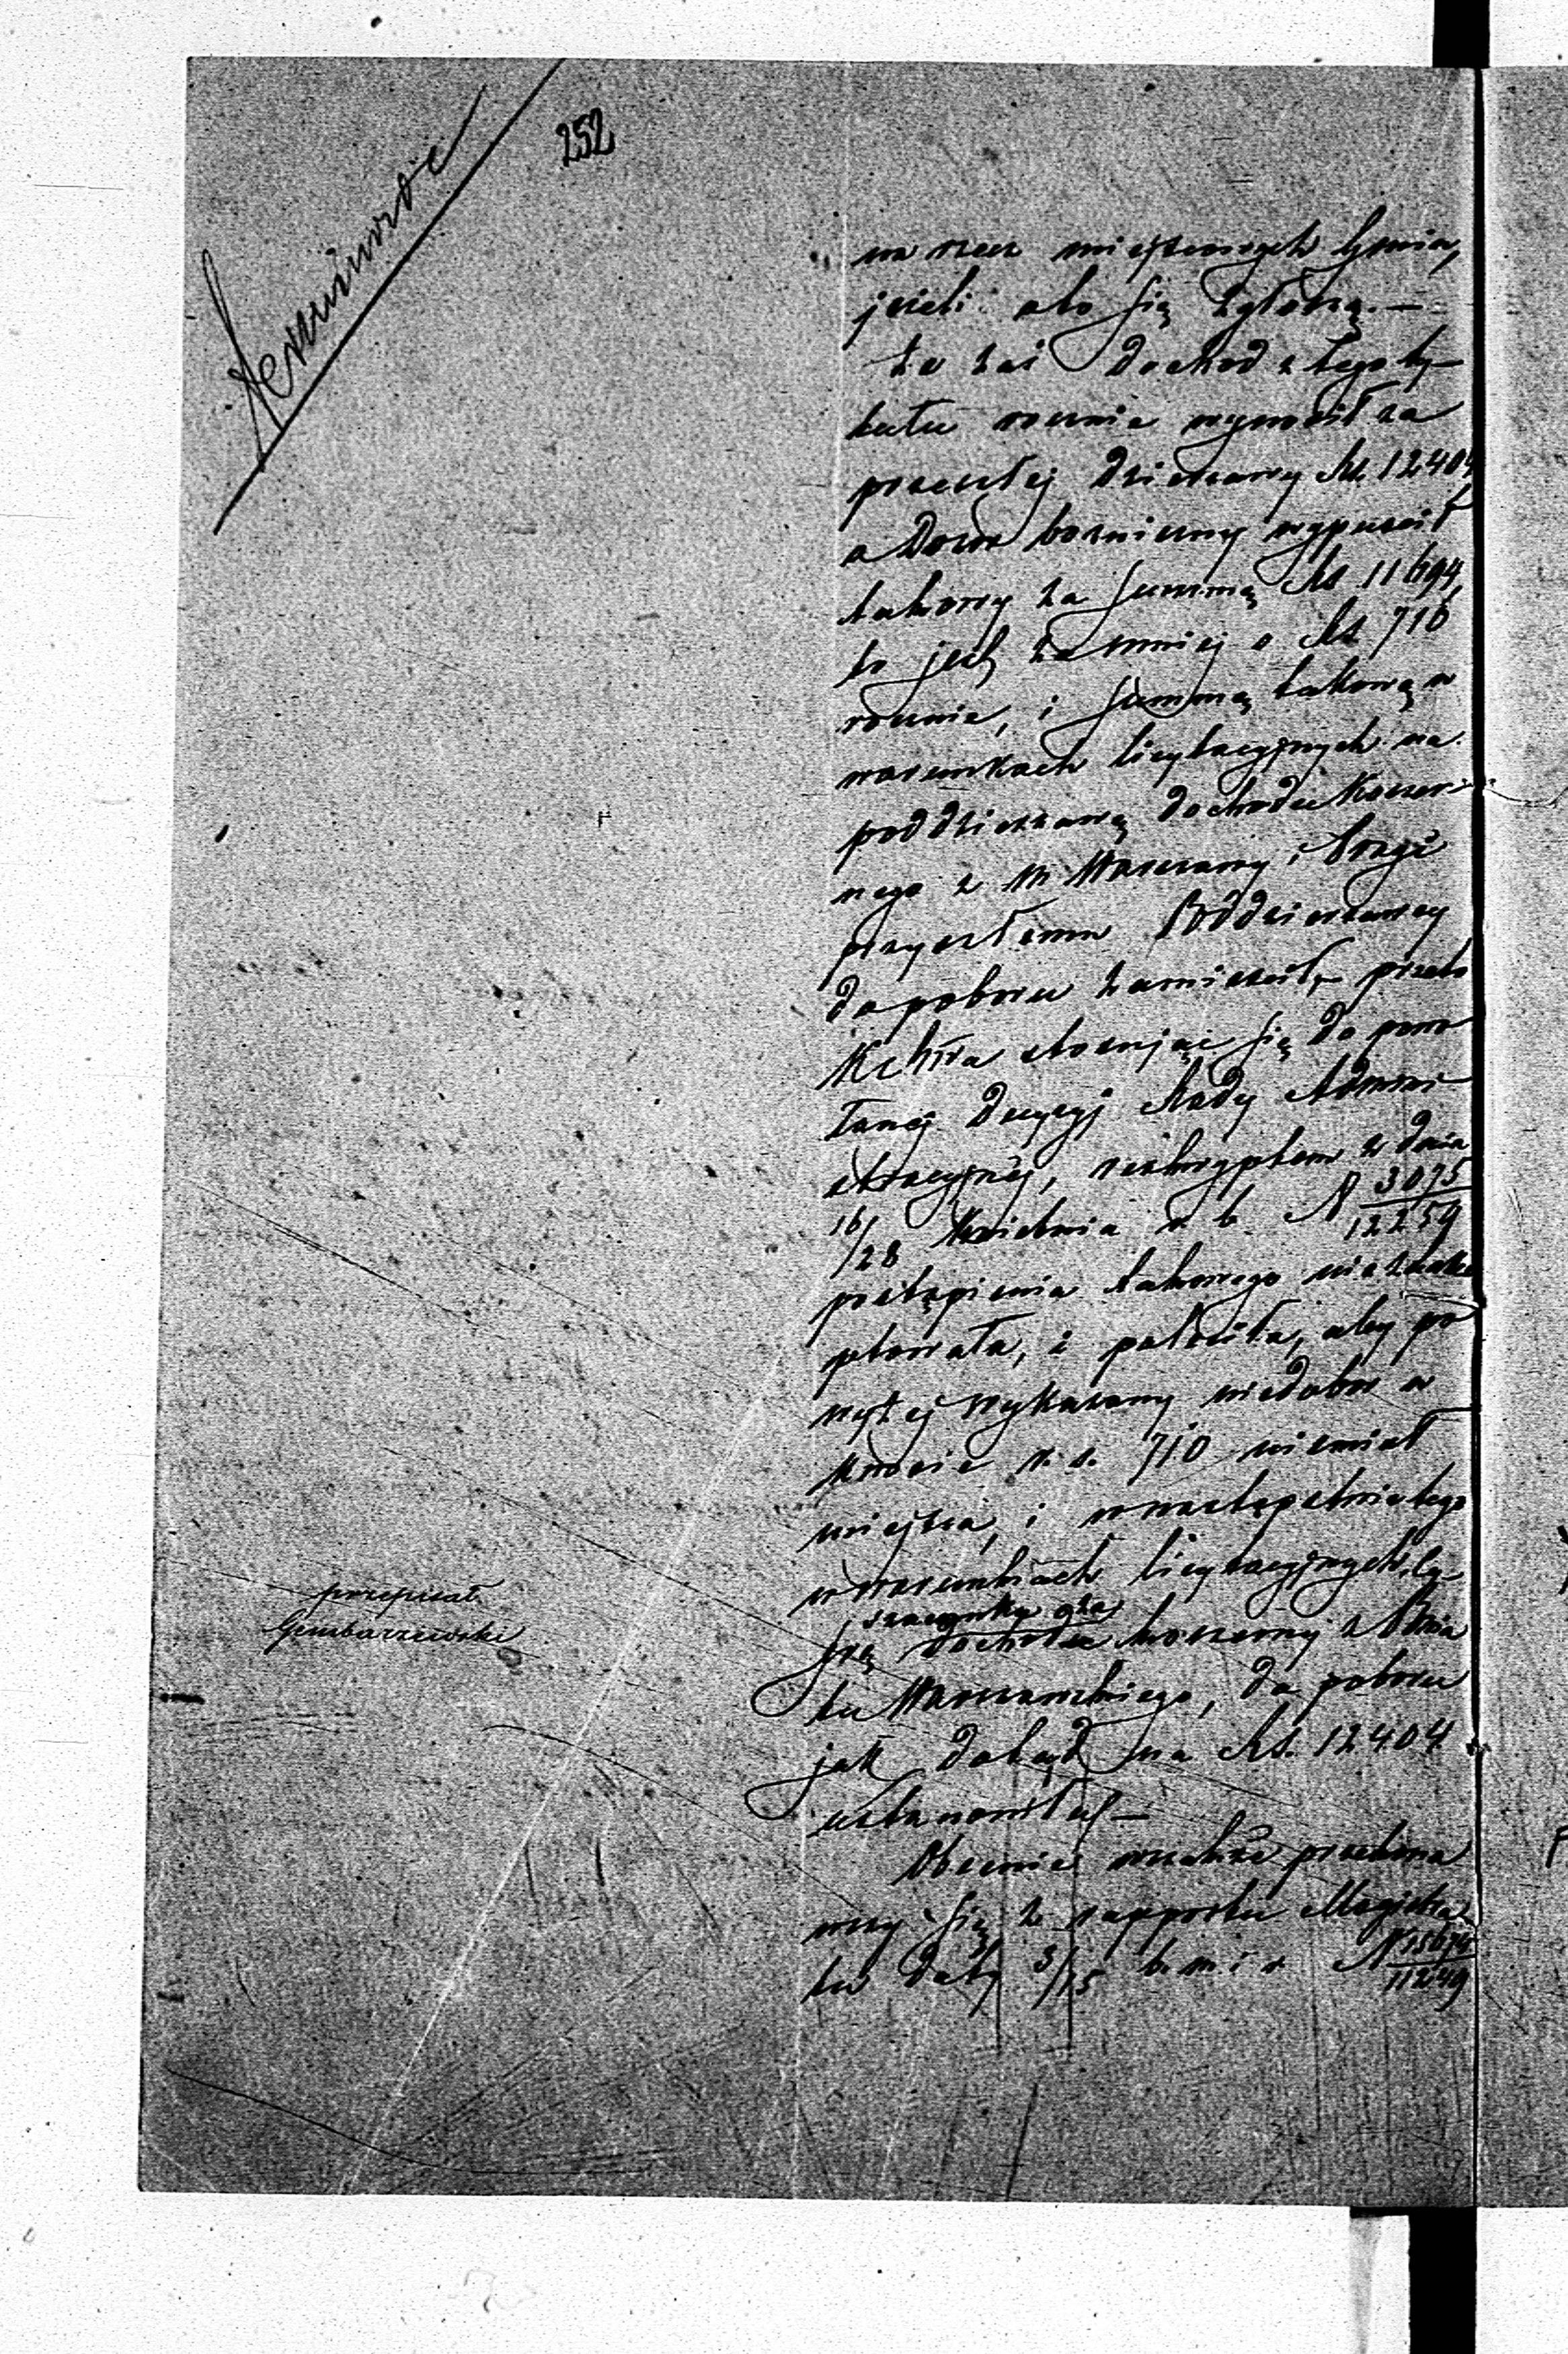 252
na rzecz miejscowych gmin,
jeżeli kto się zgłosi.—
Że zaś Dochod z tego ty-
tułu rocznie wynosił za
przeszłej Dzierżawy Rs. 12404
a Dozór bożniczny wypuścił
takowy za Summę Rs 11694,
to jest za mniej o Rs 710
rocznie, i Summę takową w
warunkach licytacyjnych na
poddzierżawę Dochodu Koszer-
nego z M. Warszawy i Pragi
przyszłemu Poddzierżawcy
do poboru zamieścił, przeto
stosując się do powo-
łanej Decyzyi Rady Admini-
stracyjnej, reskryptem z Dnia
16/28 Kwietnia r. b. N 3075/12259
postąpienia takowego nie zaakce
ptowała, i poleciła, aby po
wyżej wykazany niedobór w
kwocie r. s. 710 niemiał
miejsca, i w następstwie tego
w warunkach licytacyjnych, ly-
szacunku
Dochodu koszerny z Powia
tu Warszawskiego, do poboru
jak dotąd na Rs. 12404
ustanowiła.—
Obecnie wszakże przekona
wszy się z rapportu Magistra
tu daty 3/15 b. m. i r. N 15674/11249
przepisał
Gembarzewski